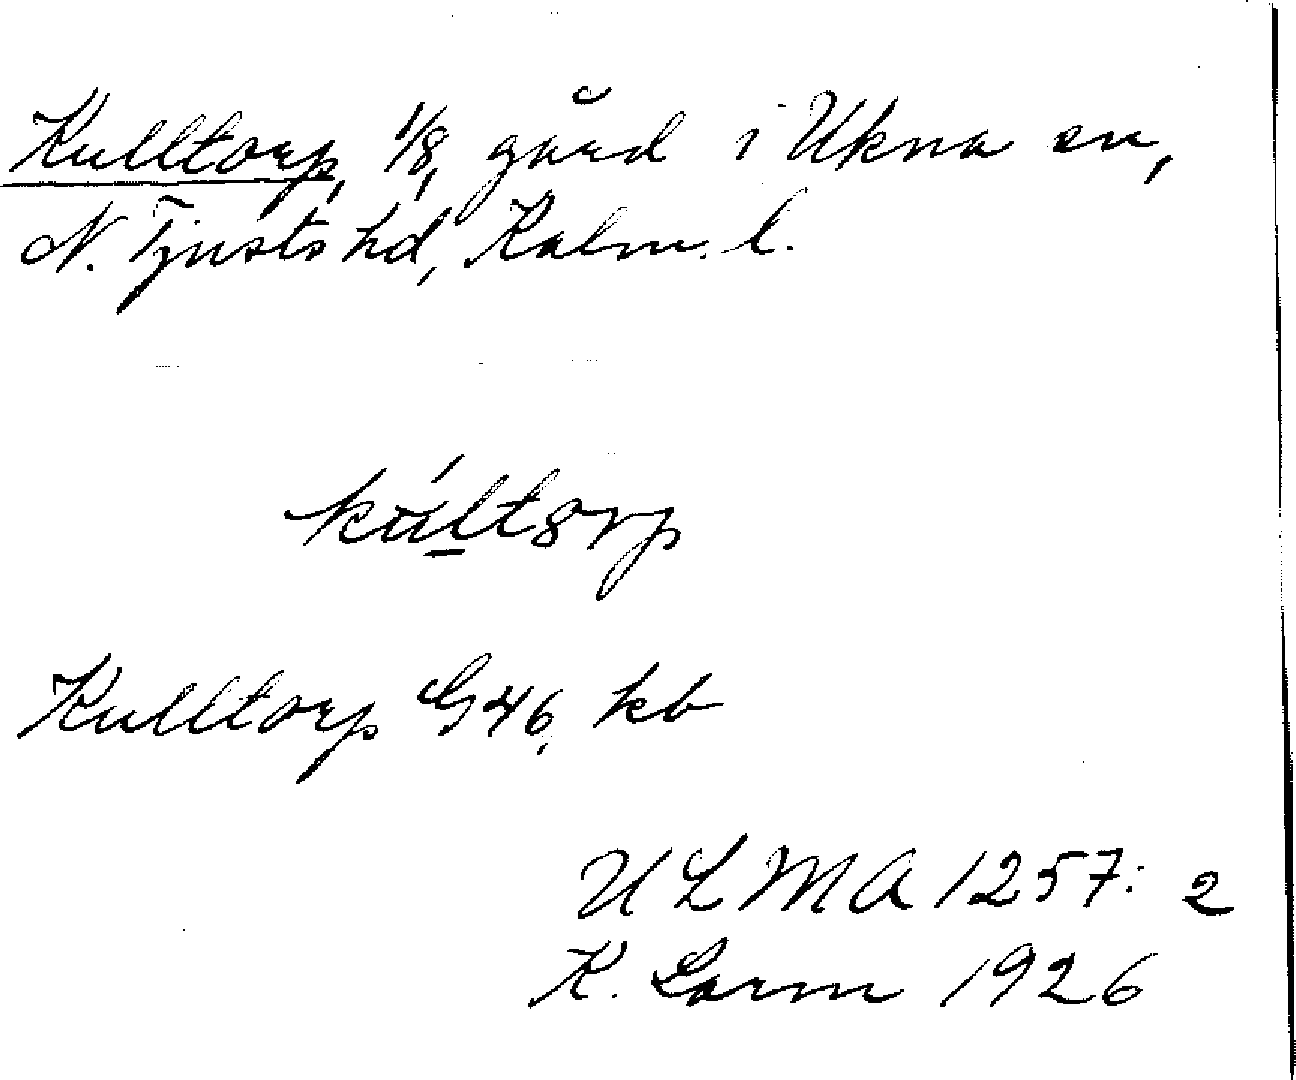 Kulltorp, 1/8, gård i Ukna sn,
N. Tjusts hd, Kalm. l.
kúltorp
Kulltorp G 46, kb
ULMA 1257: 2
K. Larm 1926